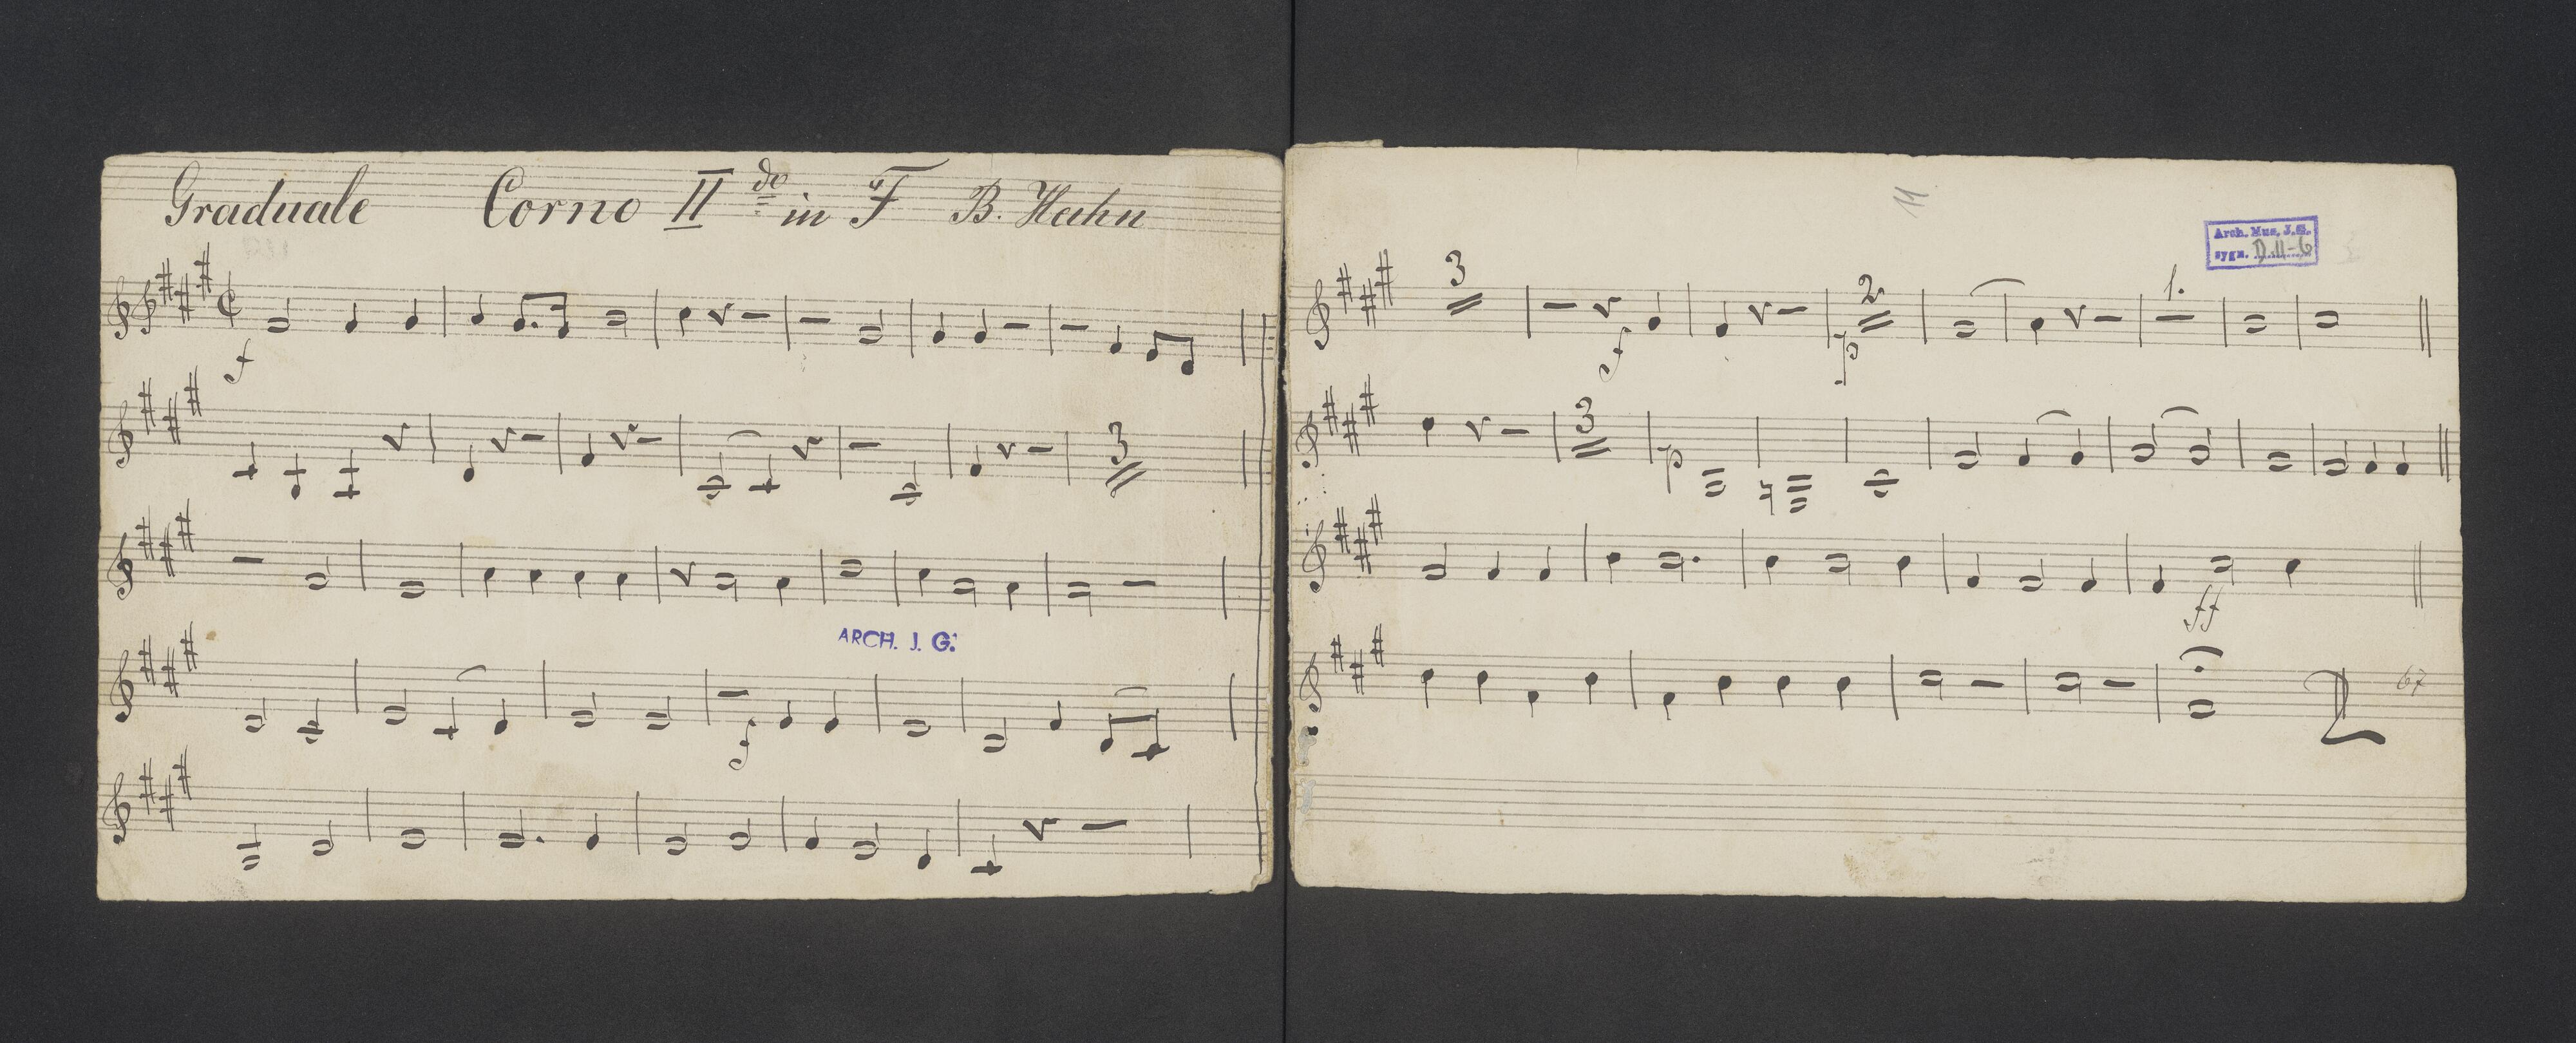 Graduale Corno II do in F B. Hahn
f
3
ARCH. J. G.
f
11
Arch. Mus. J.G.
sygn. D.II-6
3 f p 2 1.
3 p
ff
67